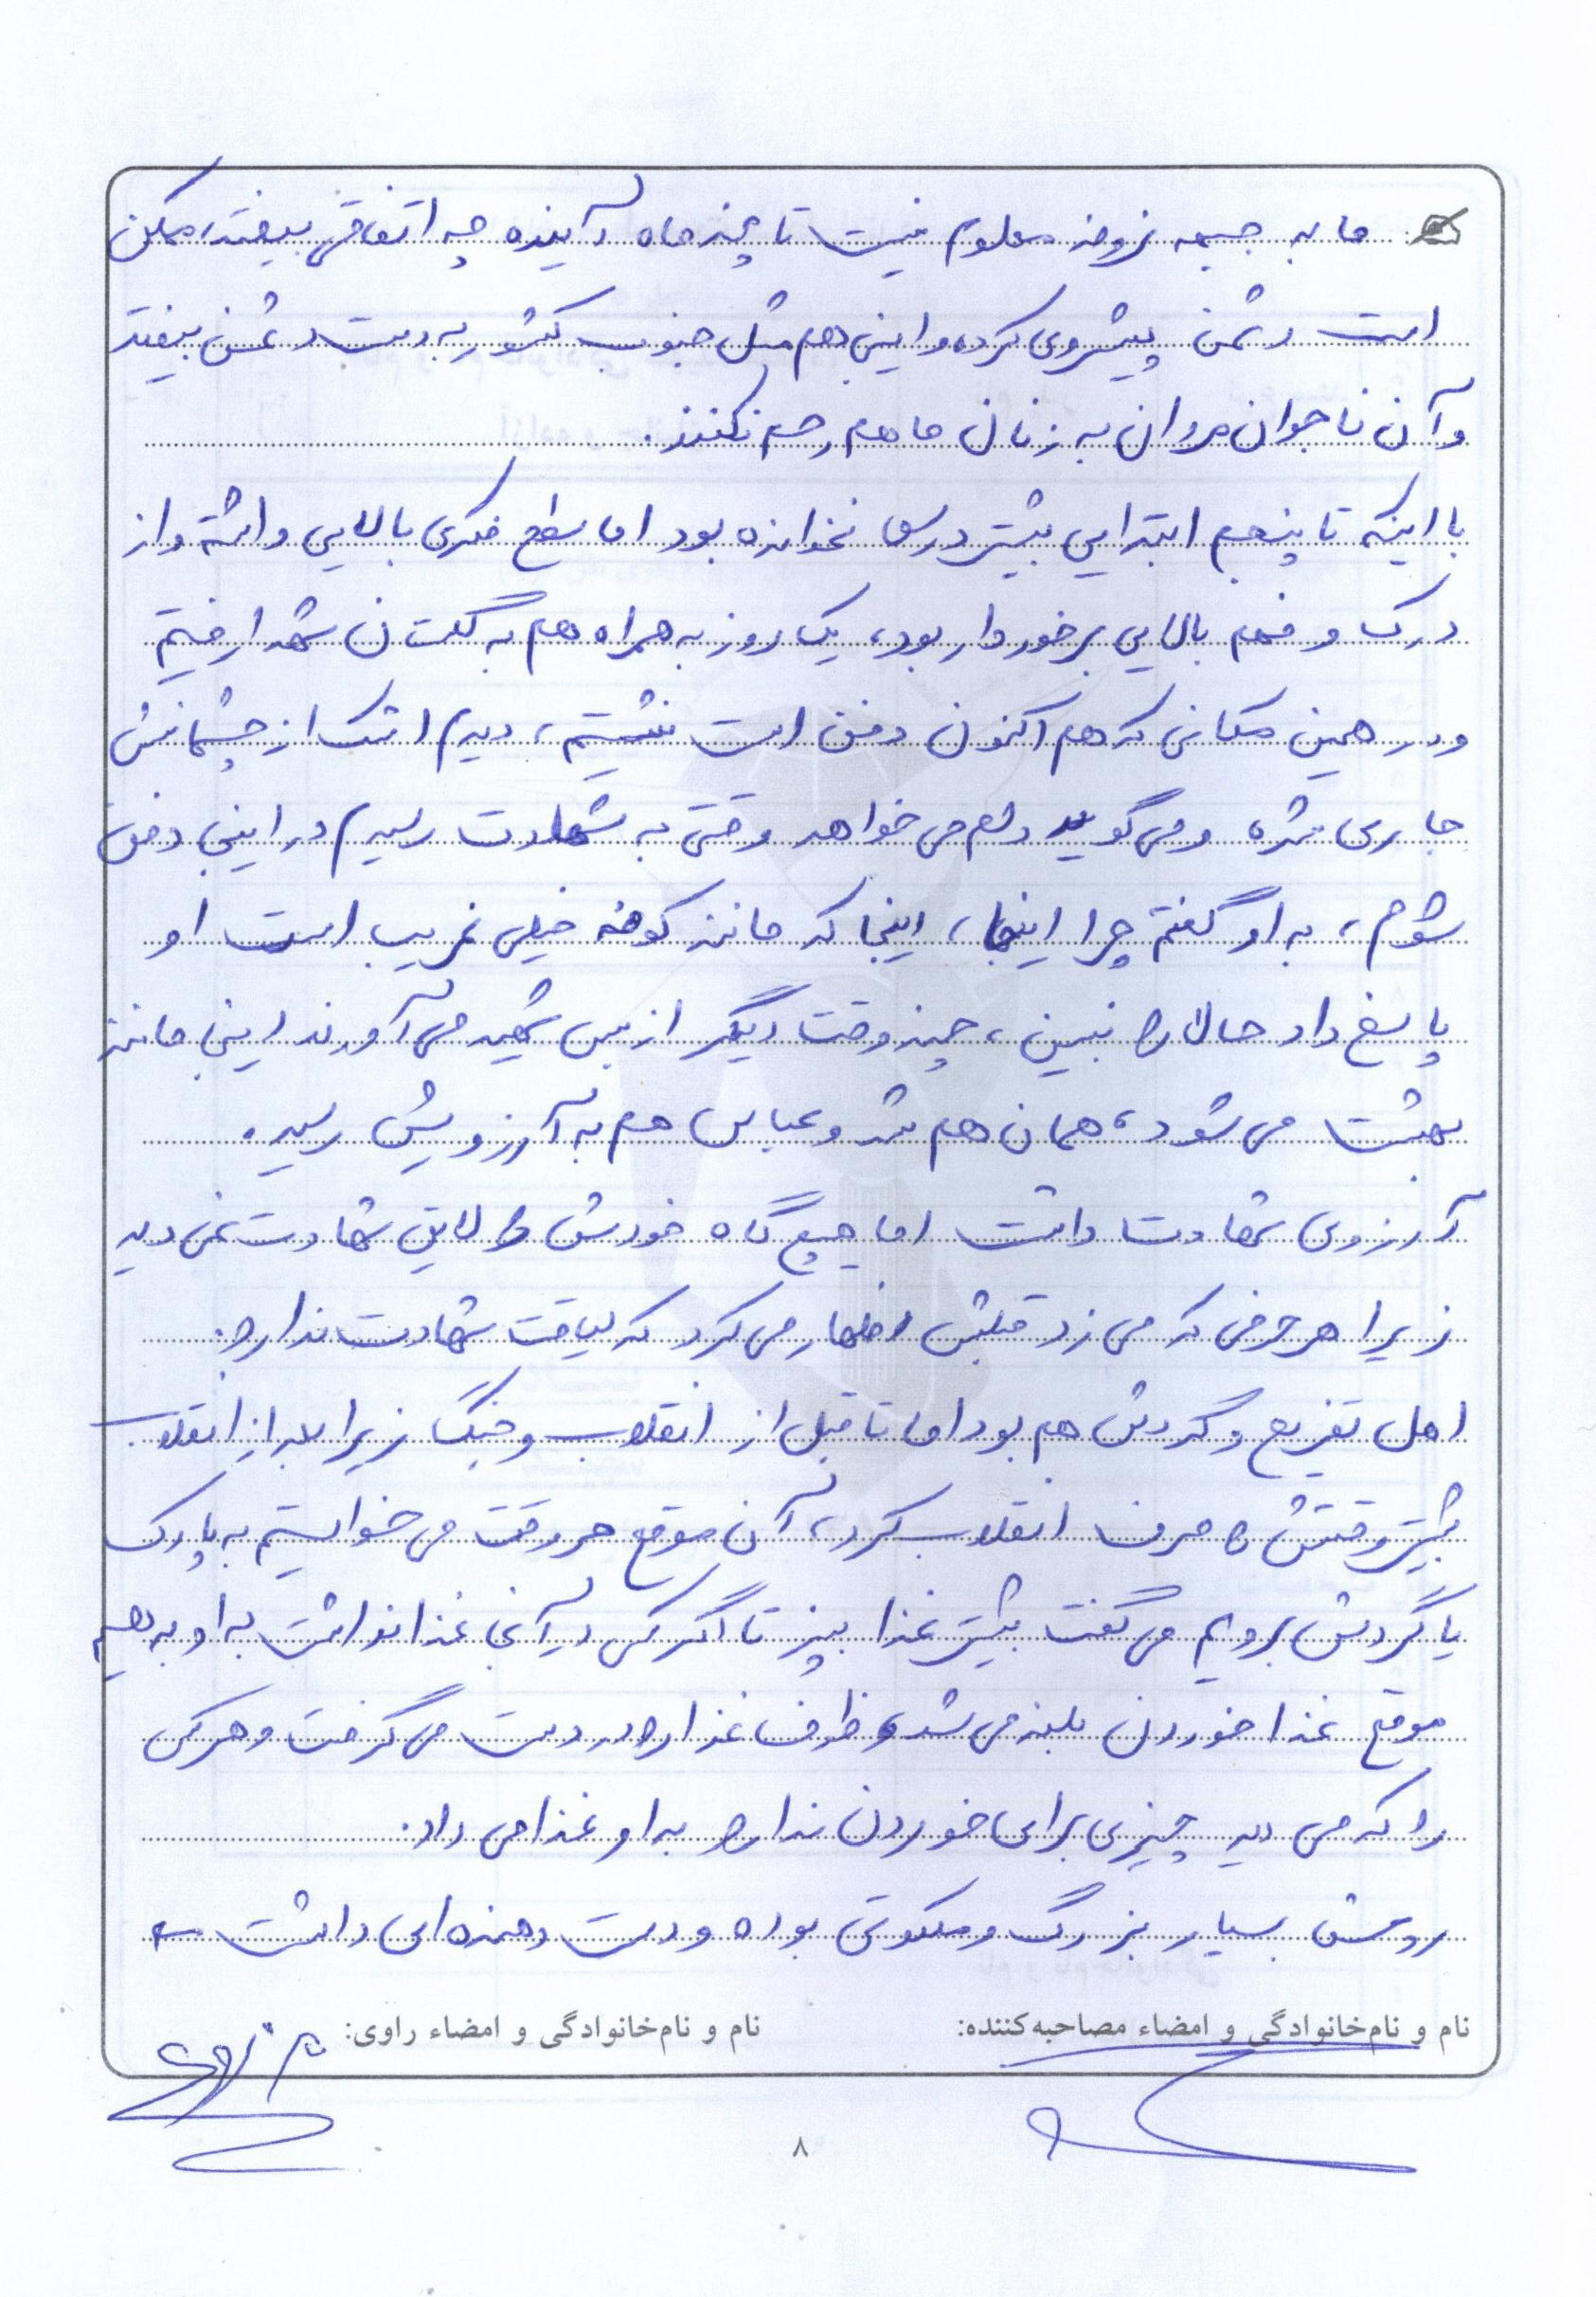 ما به جبهه نرویم معلوم نیست تا چند ماه آینده چه اتفاقی بیفتد، ممکن
است دشمن پیشروی کرده و اینجا هم مثل جنوب کشور به دست دشمن بیفتد
و آن ناجوان مردان به زنان ما هم رحم نکنند.
با اینکه تا پنجم ابتدایی بیشتر درس نخوانده بود اما سطح فکری بالایی داشته و از
درک و فهم بالایی برخوردار بود، یک روز به همراه هم به گلستان شهدا رفتیم
و در همین مکانی که هم اکنون دفن است نشستیم، دیدم اشک از چشمانش
جاری شده و می گوید دلم می خواهد وقتی به شهادت رسیدم در اینجا دفن
شوم، به او گفتم چرا اینجا، اینجا که مانند کوفه خیلی غریب است او
پاسخ داد حالا را نبین، چند وقت دیگر از بس شهید می آورند اینجا مانند
بهشت می شود، همان هم شد و عباس هم به آرزویش رسید.
آرزوی شهادت داشت اما هیچ گاه خودش را لایق شهادت نمی دید
زیرا هر حرفی که می زد قبلش اظهار می کرد که لیاقت شهادت ندارد.
اهل تفریح و گردش هم بود اما تا قبل از انقلاب و جنگ زیرا بعد از انقلاب
بیشتر وقتش را صرف انقلاب کرد، آن موقع هر وقت می خواستیم به پارک
یا گردش برویم می گفت بیشتر غذا بپز تا اگر کسی در آنجا غذا نداشت به او بدهیم
موقع غذا خوردن بلند می شد و ظرف غذا را در دست می گرفت و هر کس
را که می دید چیزی برای خوردن ندارد به او غذا می داد.
روحش بسیار بزرگ و ملکوتی بوده و دست دهنده ای داشت
نام و نام‌خانوادگی و امضاء مصاحبه‌کننده:
نام و نام‌خانوادگی و امضاء راوی:
۸